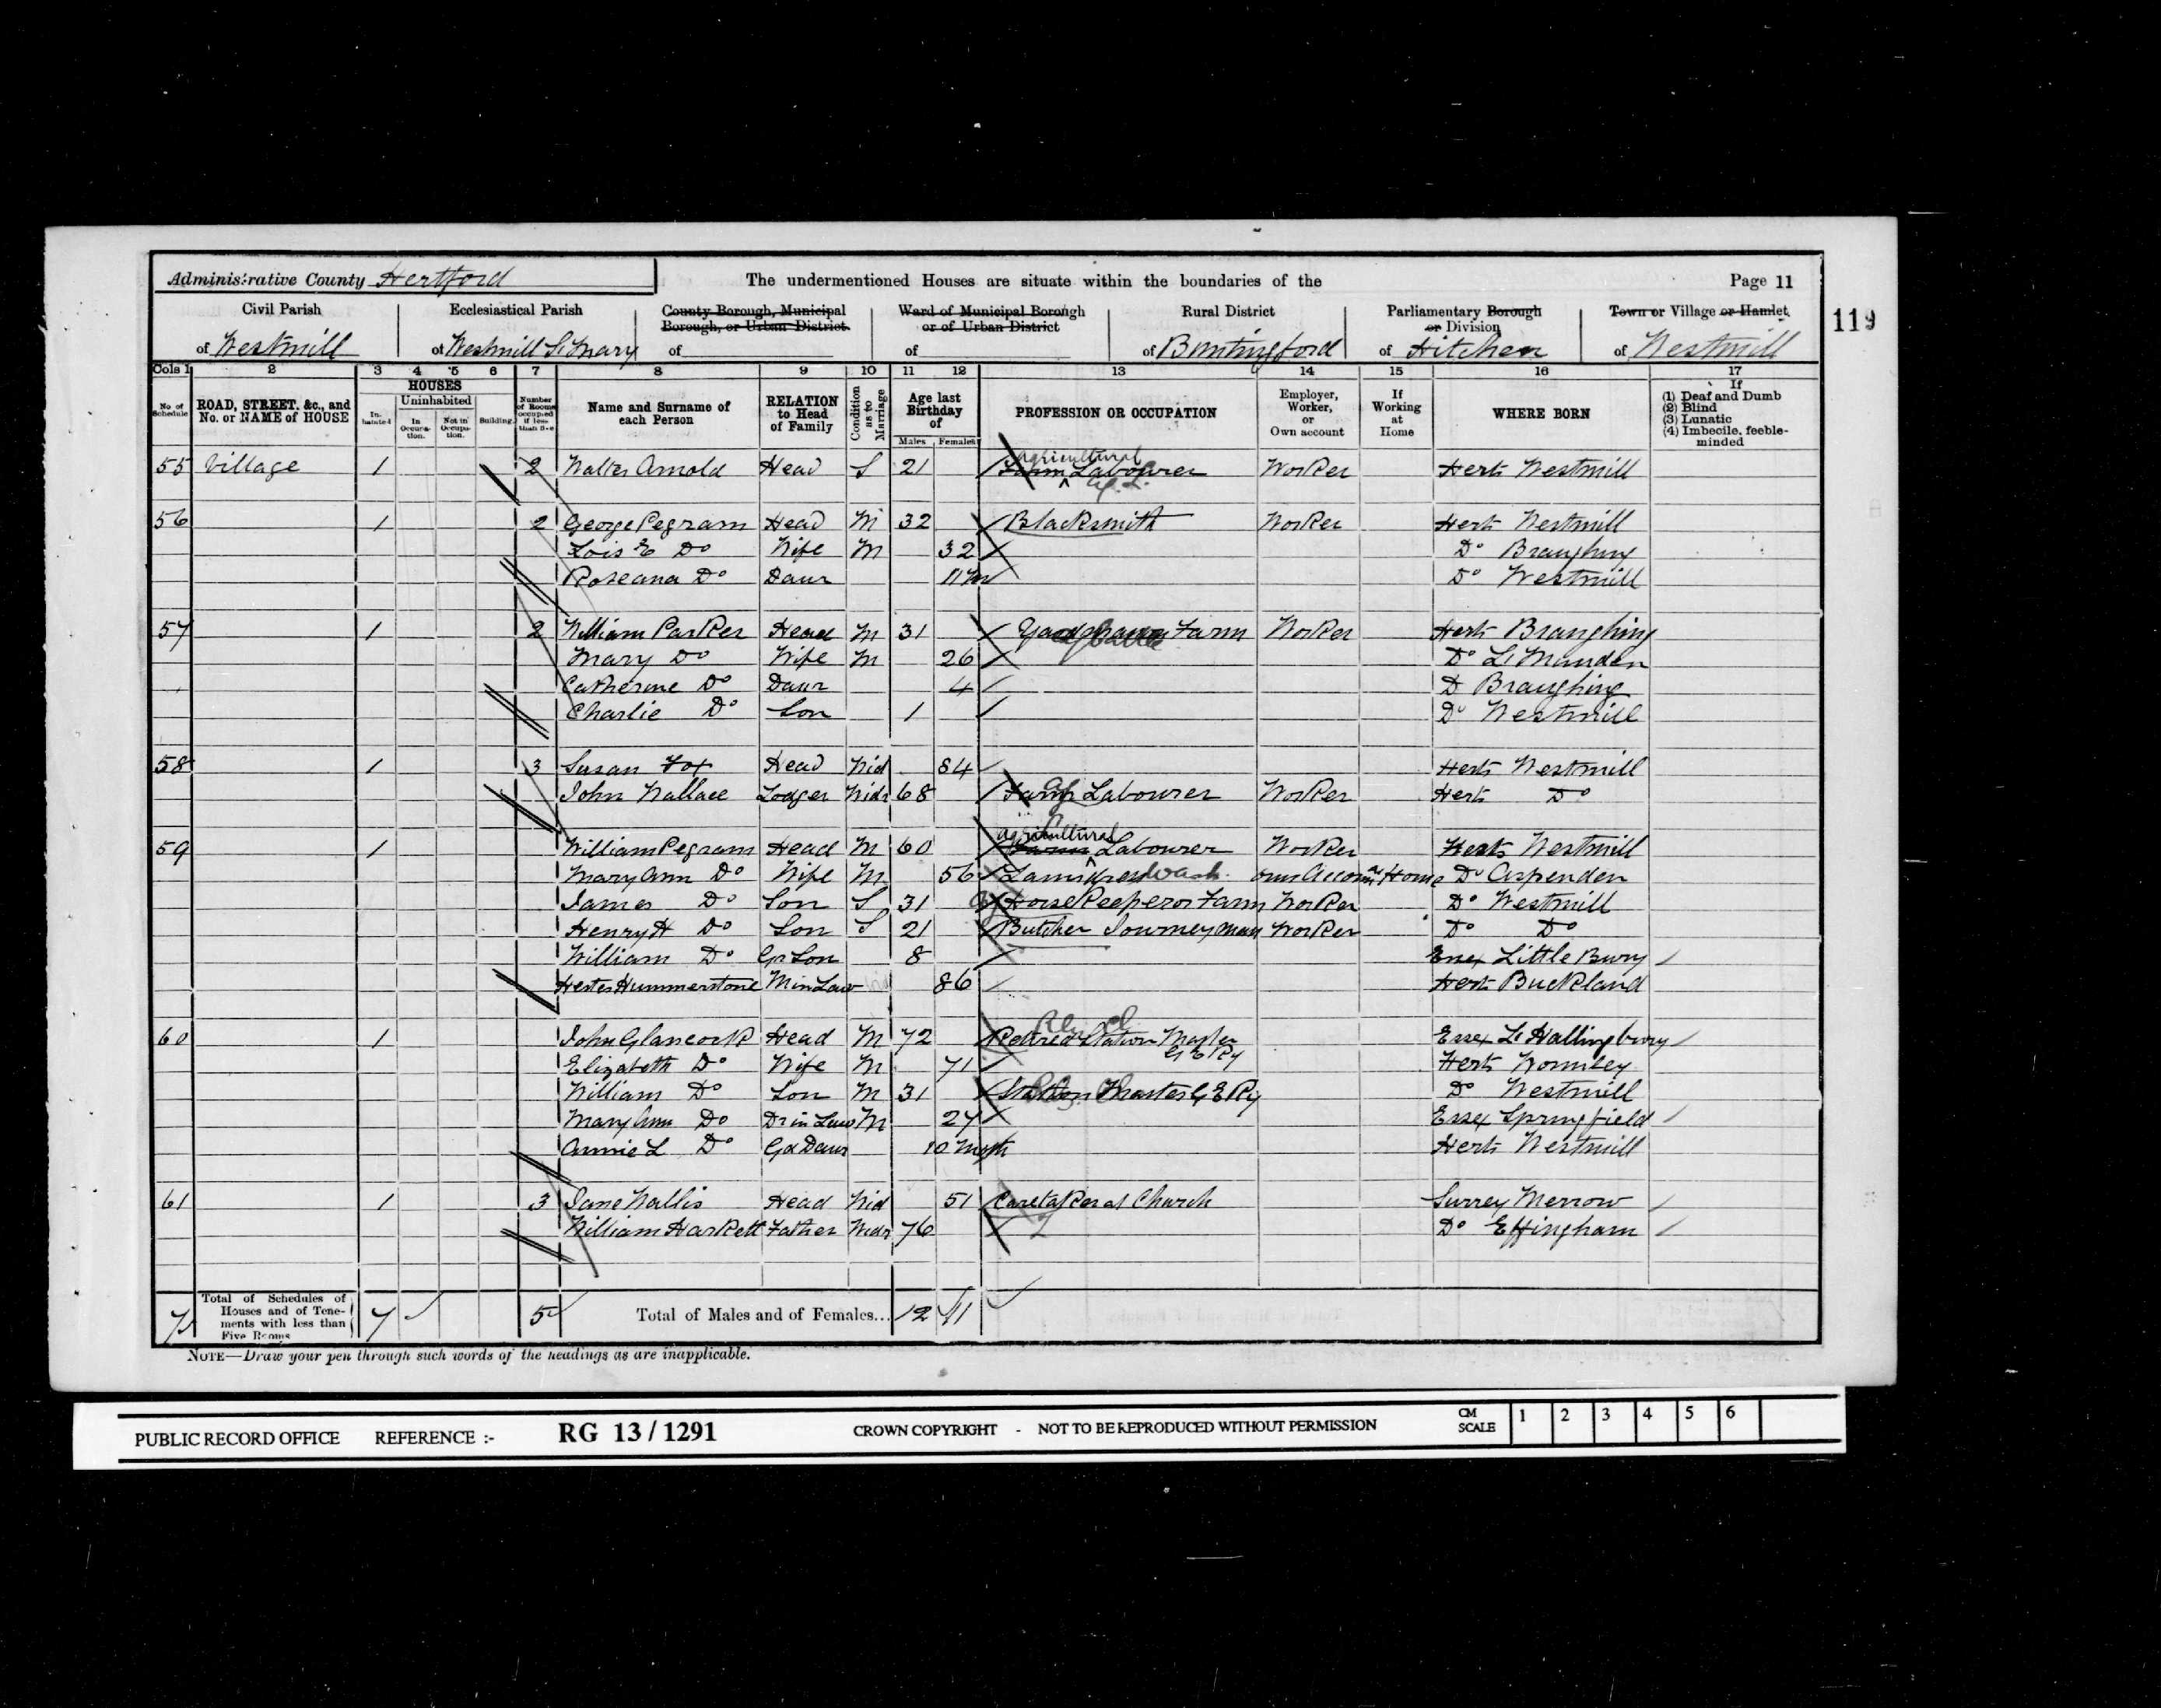 Administrative County Hertford The undermentioned Houses are situate within the boundaries of the Page 11
119
Civil Parish Ecclesiastical Parish County Borough, Municipal Borough, or Urban District Ward of Municipal Borough or of Urban District Rural District Parliamentary Borough or Division Town or Village or Hamlet
of Westmill of Westmill St Mary of of of Buntingford of Hitchen of Westmill
Cols 1 2 3 4 5 6 7 8 9 10 11 12 13 14 15 16 17
No. of Schedule ROAD, STREET, &c., and No. or NAME of HOUSE HOUSES Inhabited Uninhabited In Occupation. Not in Occupation. Building. Number of Rooms occupied if less than five Name and Surname of each Person RELATION to Head of Family Condition as to Marriage Age last Birthday of Males Females PROFESSION OR OCCUPATION Employer, Worker, or Own account If Working at Home WHERE BORN If (1) Deaf and Dumb (2) Blind (3) Lunatic (4) Imbecile, feeble-minded
55 Village 1 2 Walter Arnold Head S 21 Farm agricultural Labourer Worker Herts Westmill
Ag. L.
56 1 2 George Pegram Head M 32 Blacksmith Worker Herts Westmill
Lois E Do Wife M 32 Do Braughing
Roseana Do Daur 11 m Do Westmill
57 1 2 William Parker Head M 31 Farm Worker Herts Braughing
Mary Do Wife M 26 Do Lt Munden
Catherine Do Daur 4 D Braughing
Charlie Do Son 1 Do Westmill
58 1 3 Susan Fox Head Wid 84 Herts Westmill
John Wallace Lodger Widr 68 Farm Ag Labourer Worker Herts Do
59 1 William Pegram Head M 60 Farm agricultural Labourer Worker Herts Westmill
Mary Ann Do Wife M 56 Laundress Wash. own account at Home Do Aspenden
James Do Son S 31 Horse Keeper on Farm Worker Do Westmill
Henry H Do Son S 21 Butcher Journeyman Worker Do Do
William Do Gr Son 8 Essex Little Bury
Hester Hummerstone M in Law 86 Herts Buckland
60 1 John Glascock Head M 72 Retired Station Master G E Ry Essex Lt Hallingbury
Elizabeth Do Wife M 71 Herts Wormley
William Do Son M 31 Station Master G E Ry Do Westmill
Mary Ann Do Dr in Law M 27 Essex Springfield
Annie L Do Gd Daur 10 Mnth Herts Westmill
61 1 3 Jane Wallis Head Wid 51 Caretaker at Church Surrey Merrow
William Harkett Father Widr 76 Do Effingham
7 Total of Schedules of Houses and of Tenements with less than Five Rooms 7 5 Total of Males and of Females... 12 11
NOTE—Draw your pen through such words of the headings as are inapplicable.
PUBLIC RECORD OFFICE REFERENCE :- RG 13 / 1291 CROWN COPYRIGHT - NOT TO BE REPRODUCED WITHOUT PERMISSION CM SCALE 1 2 3 4 5 6